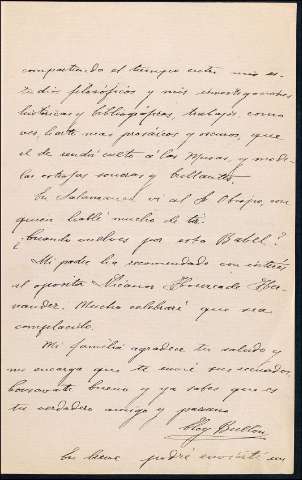 compartiendo el tiempo entre mis es-
tudios filosóficos y mis investigaciones
históricas y bibliográficas, trabajos, como
ves, harto más prosáicos y oscuros, que
el de rendir culto á las Musas, y mode-
lar estrofas sonoras y brillantes.
En Salamanca vi al Sr Obispo, con
quien hablé mucho de tí.
¿Cuándo vuelves por esta Babel?
Mi padre ha recomendado con interés
al opositor Nicanor Her-
nandez. Mucho celebraré que sea
complacido.
Mi familia agradece tu saludo y
me encarga que te envíe sus recuerdos.
bueno y ya sabes que es
tu verdadero amigo y paisano
Eloy Bullón
En breve podré enviarte un